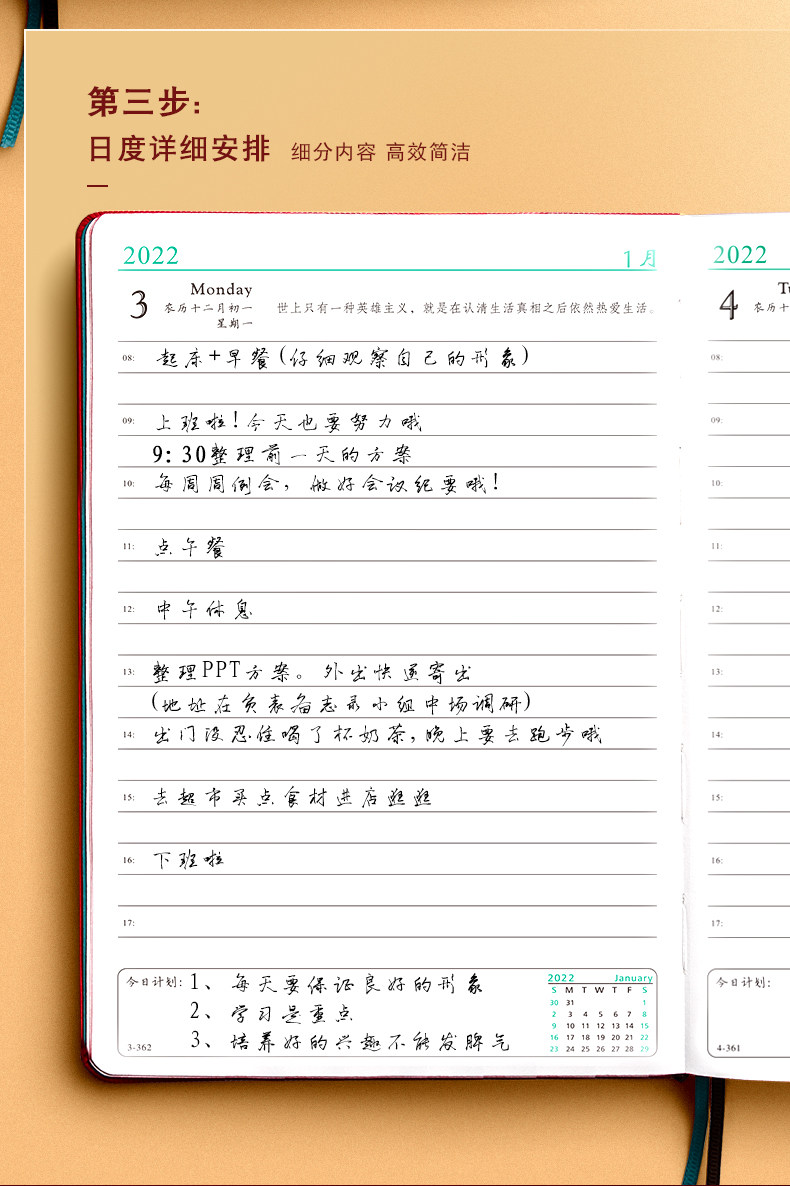 第三步:
日度详细安排 细分内容 高效简洁
2022 1月
3 Monday
农历十二月初一
星期一
世上只有一种英雄主义，就是在认清生活真相之后依然热爱生活。
08: 起床+早餐(仔细观察自己的形象)
09: 上班啦!今天也要努力哦
9: 30整理前一天的方案
10: 每周周例会，做好会议纪要哦!
11: 点午餐
12: 中午休息
13: 整理PPT方案。外出快递寄出
(地址在负表备志录小组中场调研)
14: 出门没忍住喝了杯奶茶,晚上要去跑步哦
15: 去超市买点食材进店逛逛
16: 下班啦
17:
今日计划: 1、每天要保证良好的形象
2、学习是重点
3、培养好的兴趣不能发脾气
3-362
2022 January
S M T W T F S
30 31 1
2 3 4 5 6 7 8
9 10 11 12 13 14 15
16 17 18 19 20 21 22
23 24 25 26 27 28 29
2022
4 Tu
农历十
08:
09:
10:
11:
12:
13:
14:
15:
16:
17:
今日计划:
4-361